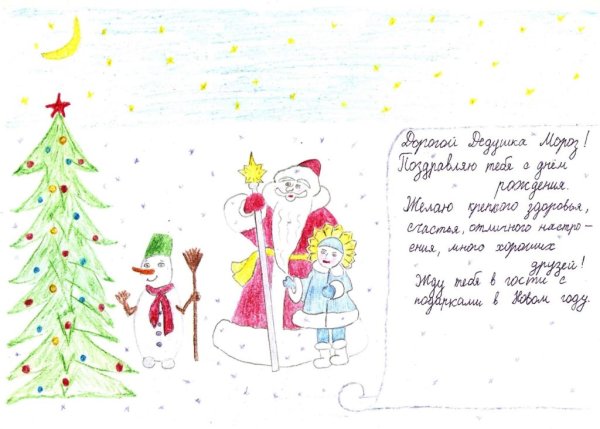 Дорогой Дедушка Мороз!
Поздравляю тебя с днём
рождения.
Желаю крепкого здоровья,
счастья, отличного настро-
ения, много хороших
друзей!
Жду тебя в гости с
подарками в Новом году.